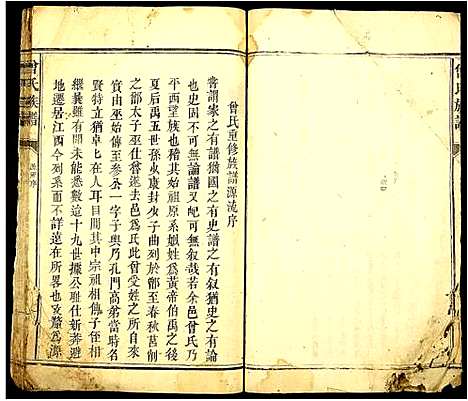 曾氏重修族譜源流序
嘗謂家之有譜猶國之有史譜之有叙猶史之有論
也史固不可無論譜又可無叙哉若余邑曾氏乃
平西望族也稽其始祖原系姒姓為黃帝伯禹之後
夏后禹五世孫少康封少子曲列於鄫至春秋莒削
之鄫太子巫仕魯去邑為氏此曾受姓之所自來
實由巫始傳至參公一字子輿乃孔門高弟當時名
賢特立猶卓卓在人耳目間其中宗祖相傳子侄相
繼羕雖有聞未能悉數迨十九世據公恥仕新莽避
地遷居江西今列系而不詳遠在所畧也攷驁為源
曾氏族譜
曾氏族譜